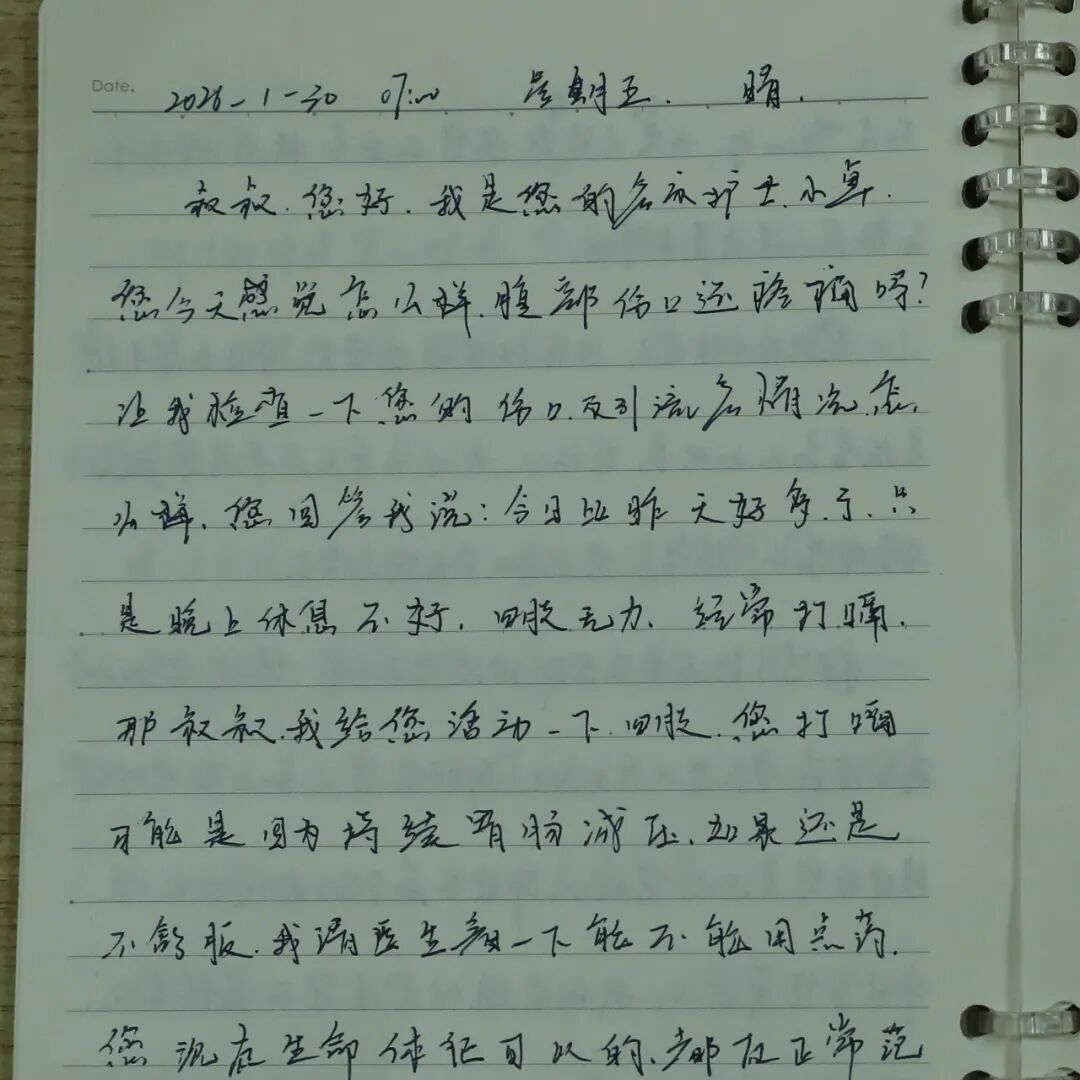 Date. 2026-1-30 07:00 星期五. 晴.
叔叔.您好.我是您的责任护士小卓.
您今天感觉怎么样.腹部伤口还疼痛吗?
让我检查一下您的伤口及引流管情况.怎
么样.您回答我说:今日比昨天好多了.只
是晚上休息不好.四肢无力.经常打嗝.
那叔叔.我给您活动一下四肢.您打嗝
可能是因为持续胃肠减压.如果还是
不舒服.我请医生看一下能不能用点药.
您现在生命体征可以的.都在正常范